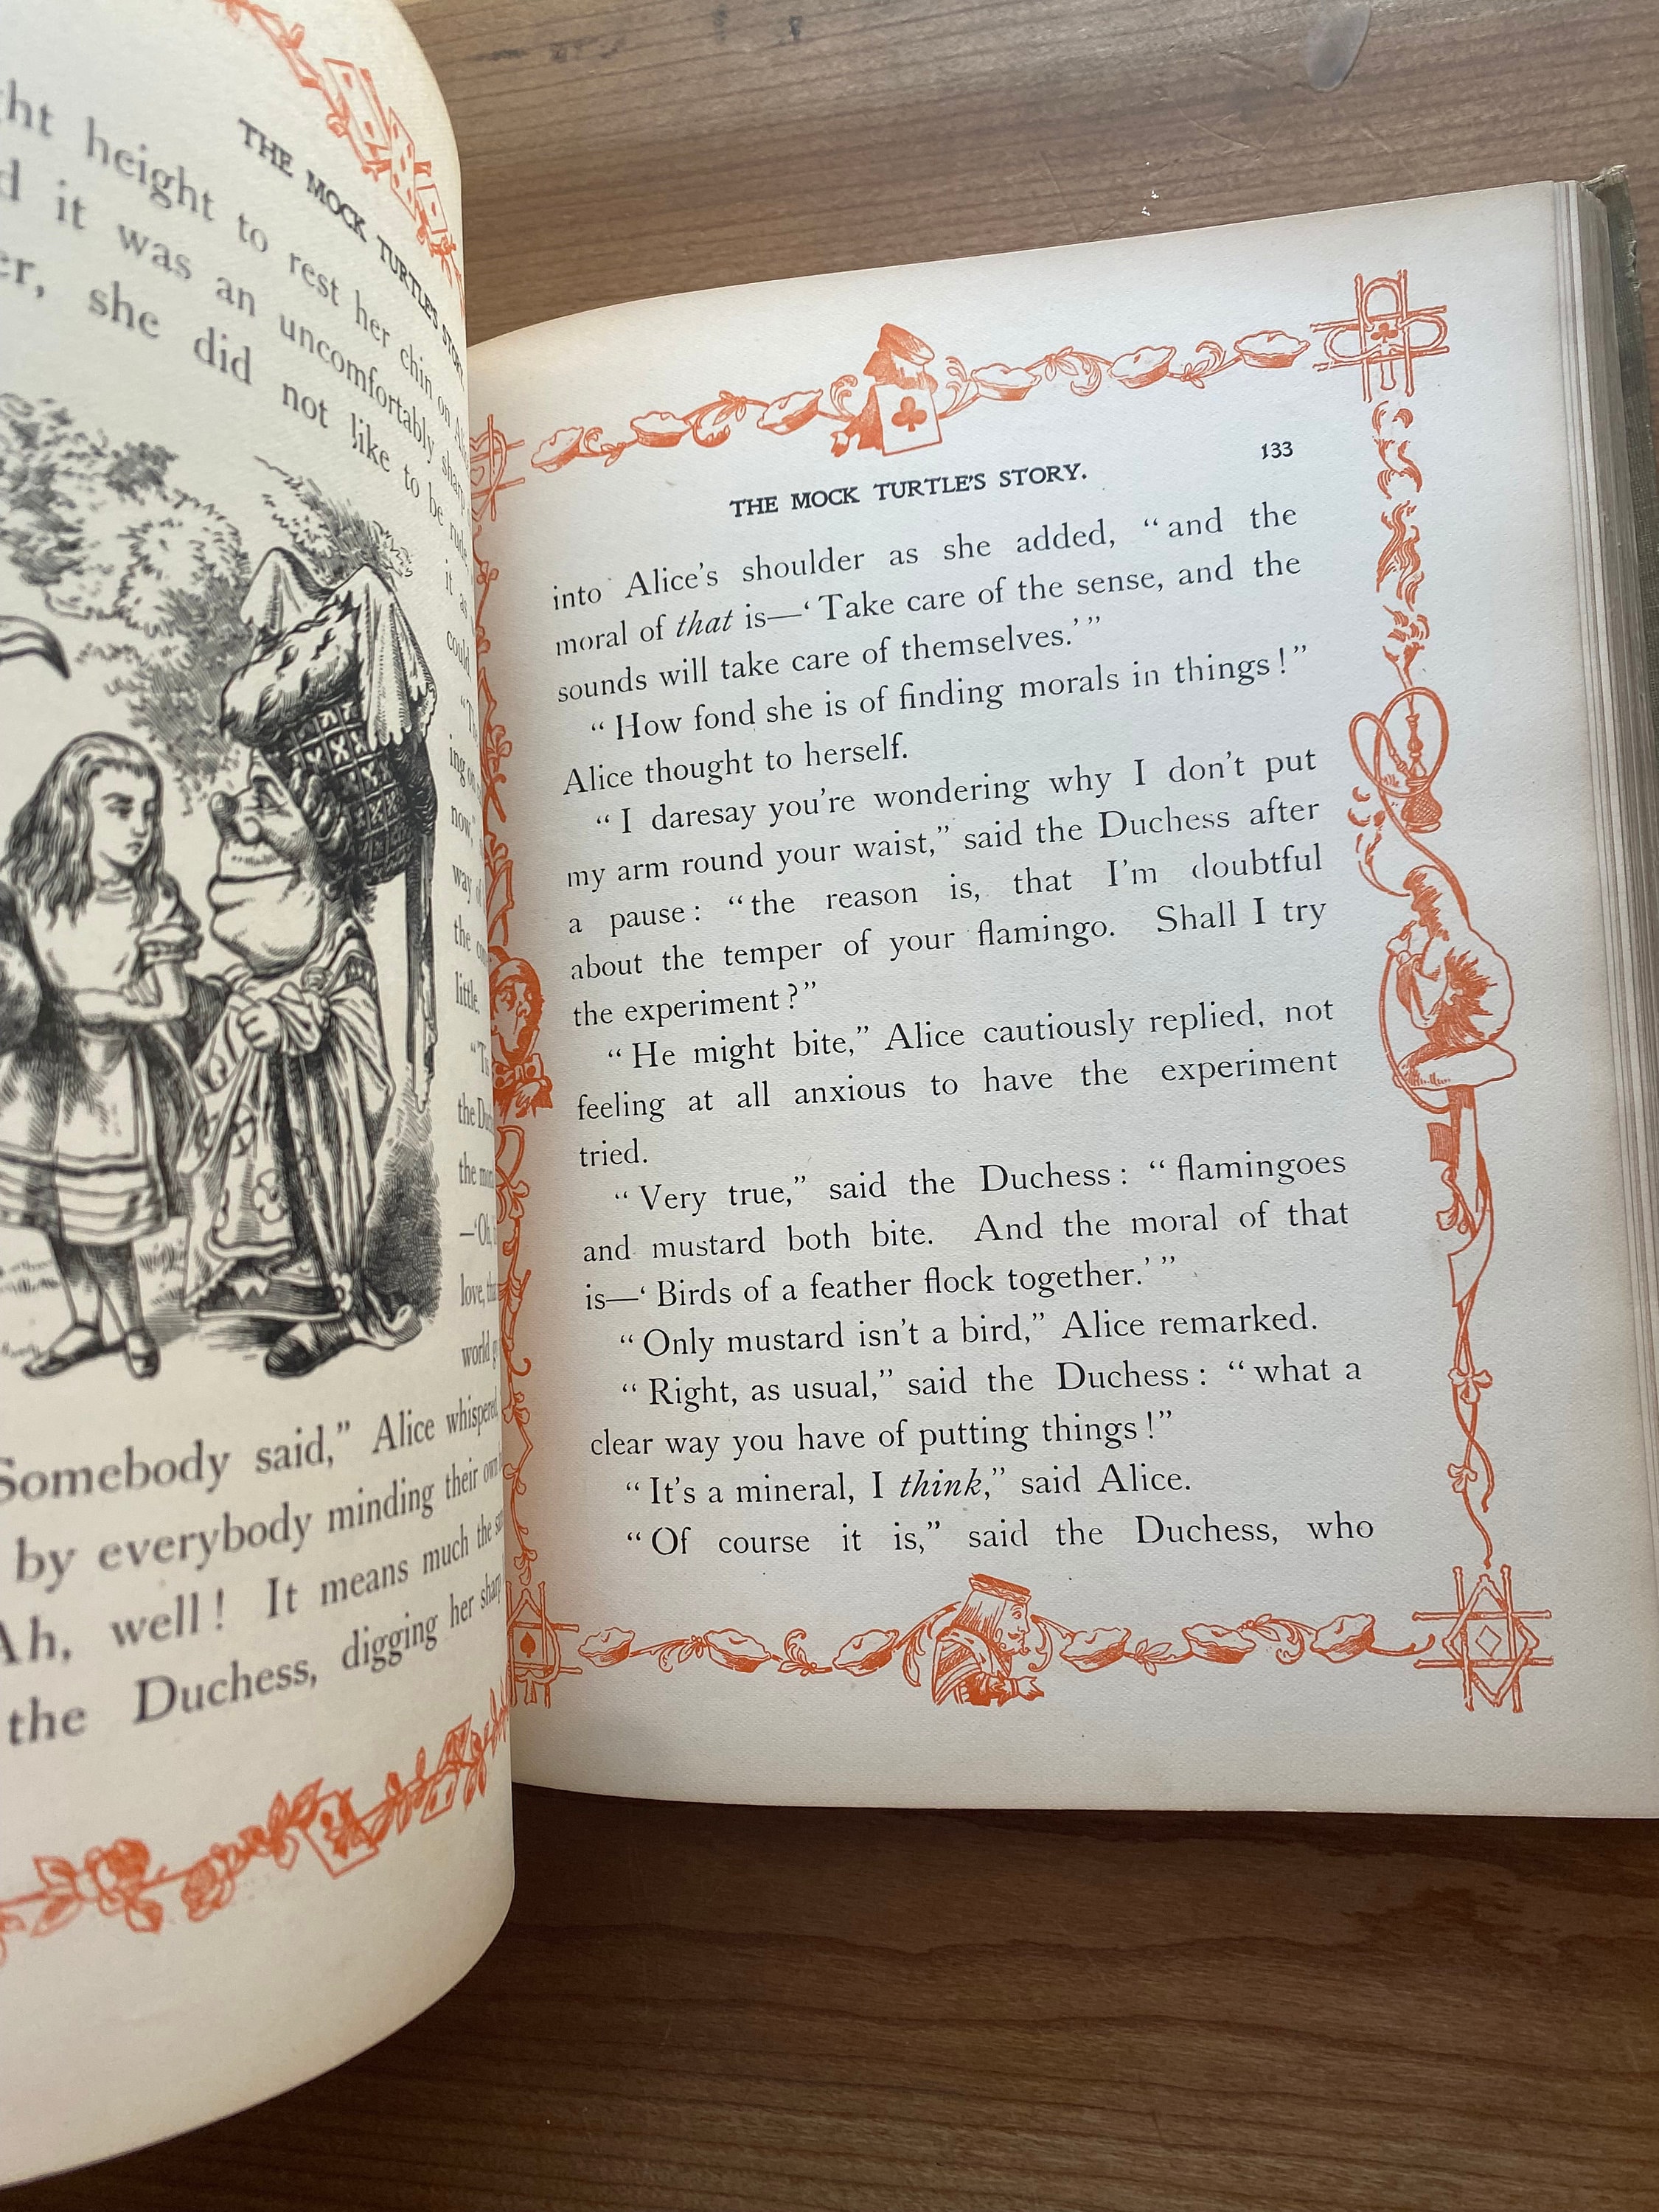 THE MOCK TURTLE'S STORY.
ght height to rest her chin on
it was an uncomfortably sharp
she did not like to be rude,
it as
could.
now,"
way of
the
little.
the
the
love,
world
Somebody said," Alice whispered,
by everybody minding their own
Ah, well! It means much the
the Duchess, digging her sharp
133
THE MOCK TURTLE'S STORY.
into Alice's shoulder as she added, "and the
moral of that is—'Take care of the sense, and the
sounds will take care of themselves.'"
"How fond she is of finding morals in things!"
Alice thought to herself.
"I daresay you're wondering why I don't put
my arm round your waist," said the Duchess after
a pause: "the reason is, that I'm doubtful
about the temper of your flamingo. Shall I try
the experiment?"
"He might bite," Alice cautiously replied, not
feeling at all anxious to have the experiment
tried.
"Very true," said the Duchess: "flamingoes
and mustard both bite. And the moral of that
is—'Birds of a feather flock together.'"
"Only mustard isn't a bird," Alice remarked.
"Right, as usual," said the Duchess: "what a
clear way you have of putting things!"
"It's a mineral, I think," said Alice.
"Of course it is," said the Duchess, who